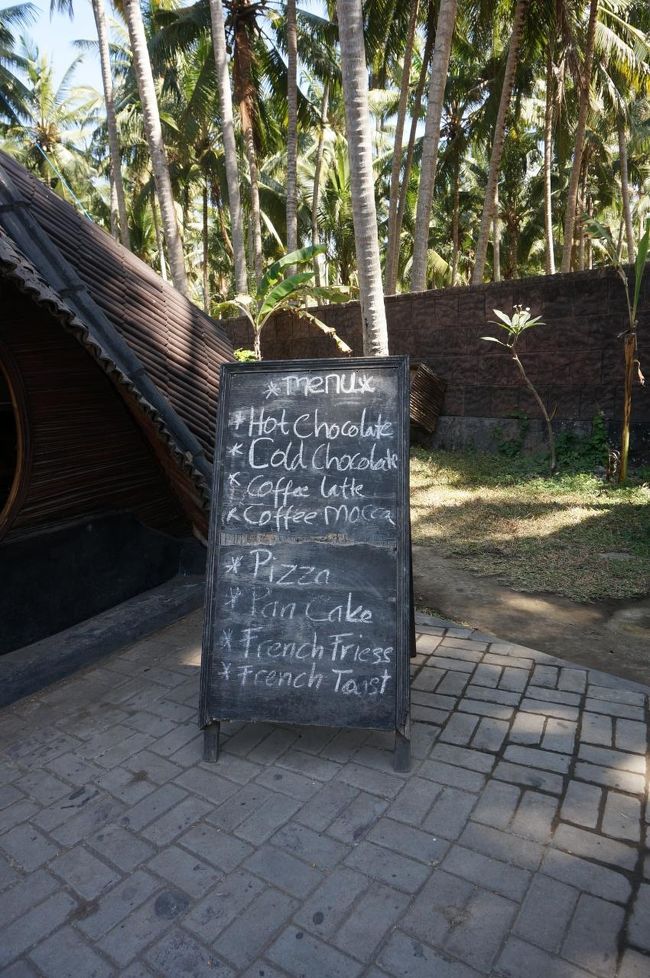 *menu*
*Hot Chocolate
*Cold Chocolate
*Coffee latte
*Coffee Mocca
*Pizza
*Pan Cake
*French Friess
*French Toast